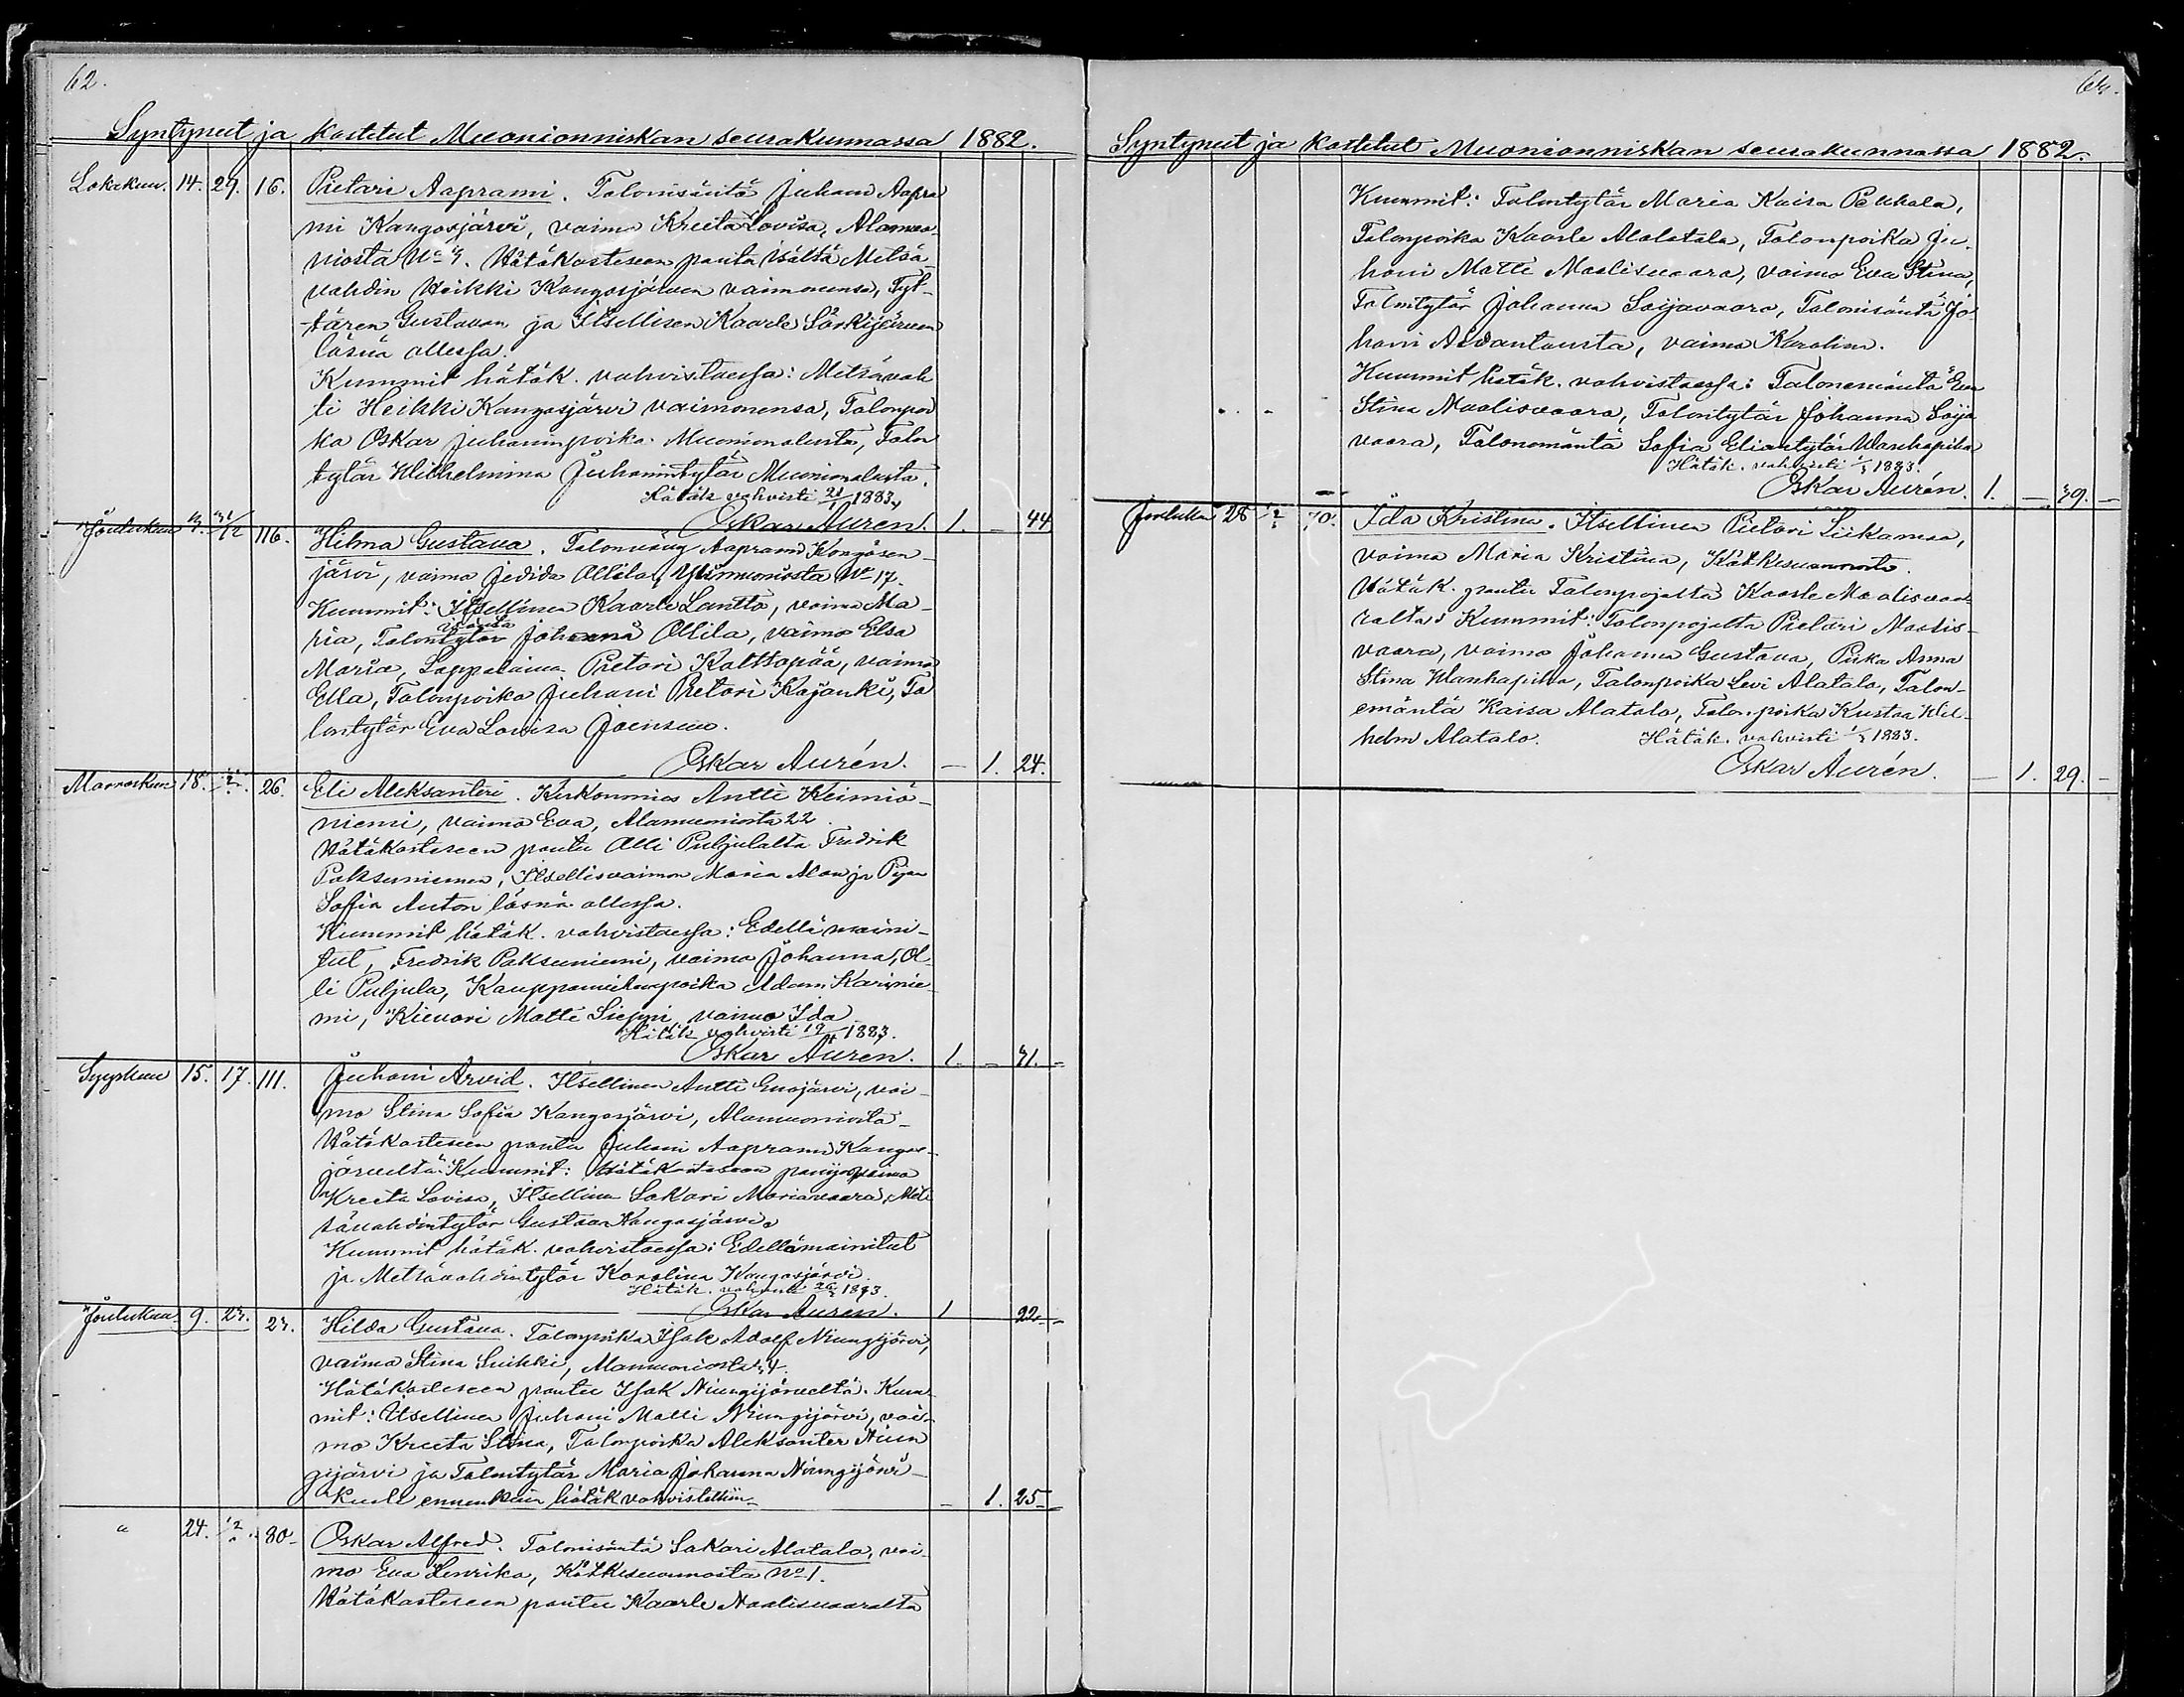 62.
Syntyneet ja kastetut Muonionniskan seurakunnassa 1882.
Lokakuu. 14. 29. 16. Pietari Aaprami. Talonisäntä Juhani Aapra
mi Kangosjärvi, vaimo Kreeta Lovisa, Alamuo-
niosta No 4. Hätäkasteseen pantu isältä Metsä-
vahdin Heikki Kangosjärven vaimonensa, Tyt-
tären Gustavan ja Itsellisen Kaarle Särkijärven
läsnä ollessa.
Kummit hätäk. vahvistaessa: Metsävah
ti Heikki Kangosjärvi vaimonensa, Talonpoi
ka Oskar Juhaninpoika Muonionalusta, Talon
tytär Wilhelmina Juhanintytär Muonionalusta.
Hätäk vahvisti 21/1 1883.
Oskar Aurén. 1. — 44
Joulukuu 3. 31/12 116. Hilma Gustava. Talonvävy Aaprami Kangosen-
järvi, vaimo Jedida Ollila, Ylimuoniosta No 17.
Kummit: Itsellinen Kaarle Lantto, vaimo Ma-
ria, Talon isäntä Johan Ollila, vaimo Elsa
Maria, Lappalainen Pietari Kalttopää, vaimo
Ella, Talonpoika Juhani Pietari Kajanki, Ta
lontytär Eva Lovisa Joensuu.
Oskar Aurén. — 1. 24.
Marraskuu 18. 26. Eli Aleksanteri. Kirkonmies Antti Keimiö-
niemi, vaimo Eva, Alamuoniosta 22.
Hätäkasteseen pantu Olli Puljulalta Fredrik
Paksuniemen, Itsellisvaimon Maria Alan ja Pijan
Sofia Auton läsnä ollessa.
Kummit hätäk. vahvistaessa: Edellä maini-
tut, Fredrik Paksuniemi, vaimo Johanna, Ol-
li Puljula, Kauppamiehenpoika Adam Karinie-
mi, Kievari Matti Sieppi, vaimo Ida
Hätäk vahvisti 19/ 1883.
Oskar Aurén. 1. — 31. —
Syyskuu 15. 17. 111. Juhani Arvid. Itsellinen Antti Enojärvi, vai-
mo Stina Sofia Kangosjärvi, Alamuoniosta
Hätäkasteseen pantu Juhani Aaprami Kangos-
järveltä. Kummit: Hätäkasteseen panijan vaimo
Kreeta Lovisa, Itsellinen Sakari Mariavaara, Met
sävahdintytär Gustava Kangosjärvi.
Kummit hätäk. vahvistaessa: Edellämainitut
ja Metsävahdintytär Karolina Kangosjärvi.
Hätäk. vahvisti 26/ 1883.
Oskar Aurén. 1 22. —
Joulukuu 9. 23. 23. Hilda Gustava. Talonpoika Isak Adolf Niungijärvi,
vaimo Stina Suikki, Alamuoniosta 4.
Hätäkasteseen pantu Isak Niungijärveltä. Kum-
mit: Itsellinen Juhani Matti Niungijärvi, vai-
mo Kreeta Stina, Talonpoika Aleksanter Niun
gijärvi ja Talontytär Maria Johanna Niungijärvi
Kuoli ennenkuin hätäk vahvistettiin — 1. 25 —
" 24. 80 Oskar Alfred. Talonisäntä Sakari Alatalo, vai-
mo Eva Henrika, Kätkesuannosta No 1.
Hätäkasteseen pantu Kaarle Maalisvaaralta
Syntyneet ja kastetut Muonionniskan seurakunnassa 1882.
Kummit: Talontytär Maria Kaisa Pekkala,
Talonpoika Kaarle Alatalo, Talonpoika Ju-
hani Matti Maalisvaara, vaimo Eva Stina,
Talontytär Johanna Soijavaara, Talonisäntä Jo
hani Aidantausta, vaimo Karolina.
Kummit hätäk. vahvistaessa: Talonemäntä Eva
Stina Maalisvaara, Talontytär Johanna Soija
vaara, Talonemäntä Sofia Eliantytär Wanhapiha
Hätäk. vahvisti 1883.
Oskar Aurén. 1. — 39. —
Joulukuu 28 70. Ida Kristina. Itsellinen Pietari Siikamaa,
vaimo Maria Kristina, Kätkesuannosta.
Hätäk. pantu Talonpojalta Kaarle Maalisvaa-
ralta. Kummit: Talonpojalta Pietari Maalis-
vaara, vaimo Johanna Gustava, Piika Anna
Stina Wanhapiha, Talonpoika Levi Alatalo, Talon-
emäntä Kaisa Alatalo, Talonpoika Kustaa Wil-
helm Alatalo. Hätäk. vahvisti 1883.
Oskar Aurén. — 1. 29. —